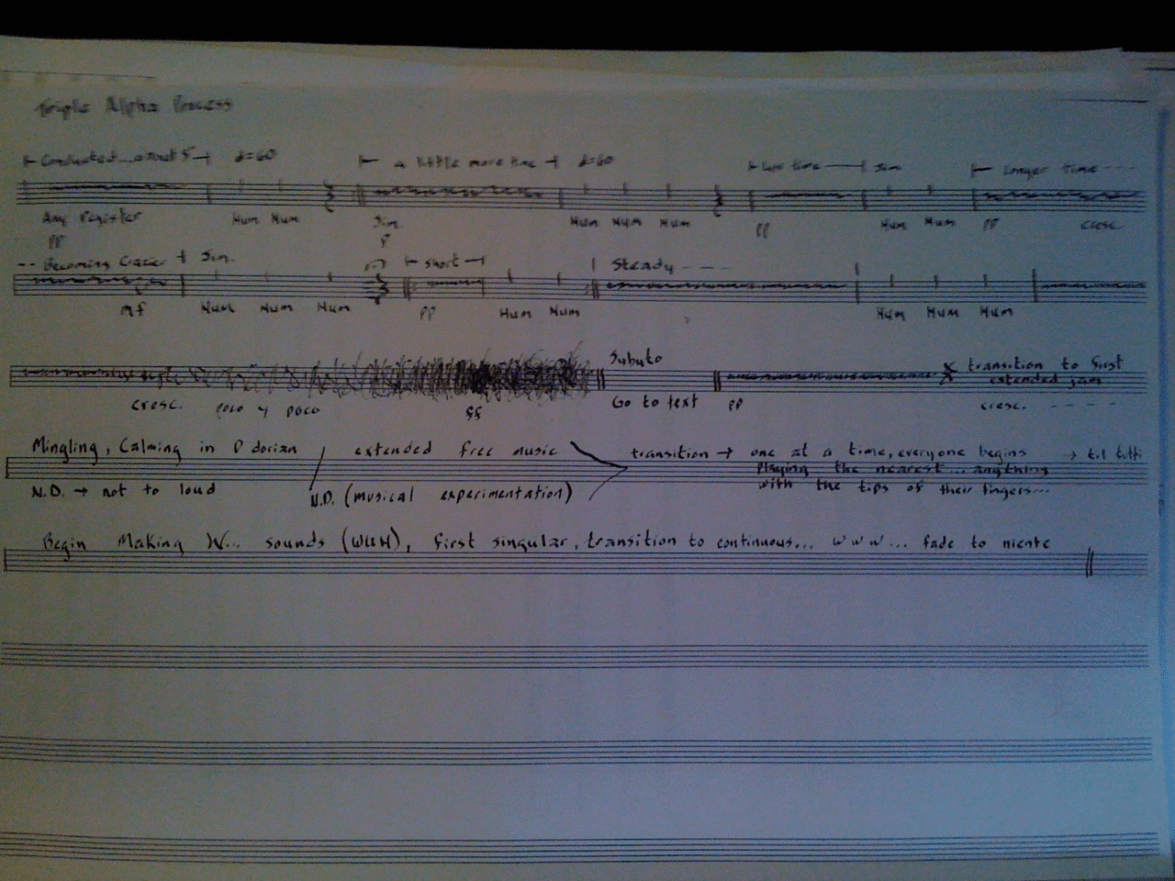 Triple Alpha Process
Conducted... about 5 ♩=60 a little more time ♩=60 less time Sim longer time - - - -
Any register Hum Hum Sim. Hum Hum Hum pp Hum Hum pp cresc.
pp p
- - Becoming Crazier Sim. short Steady - - - -
mf Hum Hum Hum pp Hum Hum Hum Hum Hum
Subito transition to first
extended jam
cresc. poco y poco ff Go to text pp cresc. - - - -
Mingling, Calming in D dorian / extended free music transition → one at a time, everyone begins → til tutti
playing the nearest... anything
N.D. → not to loud N.D. (musical experimentation) with the tips of their fingers...
Begin Making W... sounds (WUH), first singular, transition to continuous... w w w ... fade to niente